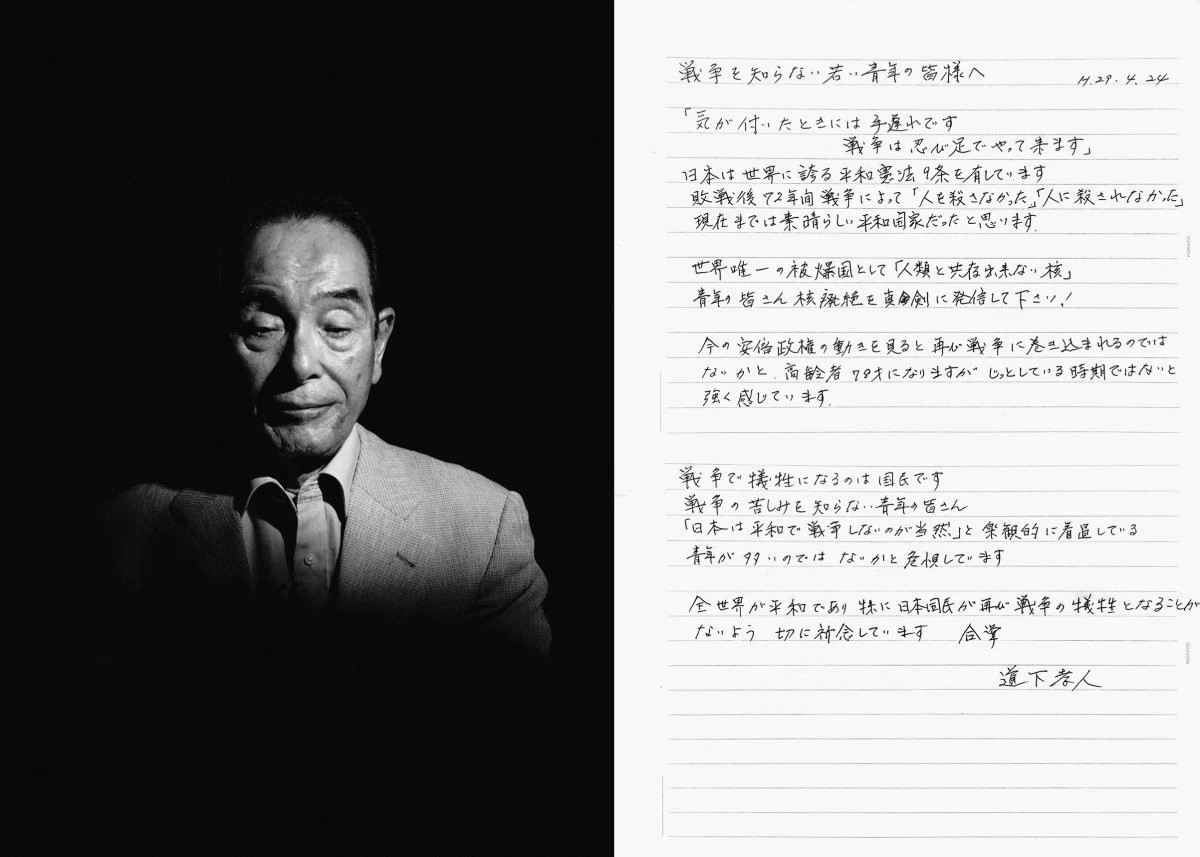 戦争を知らない若い青年の皆様へ
H.29.4.24
「気が付いたときには手遅れです
戦争は忍び足でやって来ます」
日本は世界に誇る平和憲法9条を有しています
敗戦後72年間戦争によって「人を殺さなかった」「人に殺されなかった」
現在までは素晴らしい平和国家だったと思います.
世界唯一の被爆国として「人類と共存出来ない核」
青年の皆さん核廃絶を真剣に発信して下さい!
今の安倍政権の動きを見ると再び戦争に巻き込まれるのでは
ないかと、高齢者78才になりますがじっとしている時期ではないと
強く感じています.
戦争で犠牲になるのは国民です
戦争の苦しみを知らない青年の皆さん
「日本は平和で戦争しないのが当然」と楽観的に看過している
青年が多いのではないかと危惧しています
全世界が平和であり特に日本国民が再び戦争の犠牲となることが
ないよう 切に祈念しています 合掌
道下孝人
KOKUYO
KOKUYO